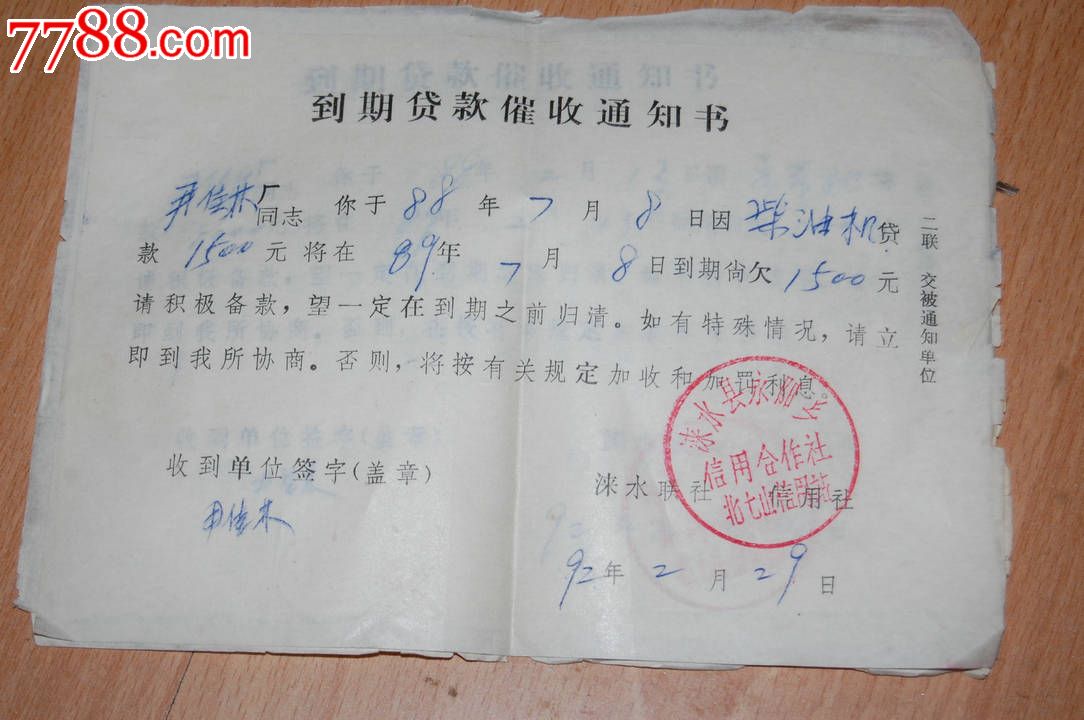 7788.com
到期贷款催收通知书
佳林厂同志 你于88年7月8日因柴油机贷
款1500元将在89年7月8日到期尚欠1500元
请积极备款，望一定在到期之前归清。如有特殊情况，请立
即到我所协商。否则，将按有关规定加收和加罚利息。
二联 交被通知单位
收到单位签字(盖章)
佳林
涞水联社 信用社
涞水县永阳乡
信用合作社
北七山信用站
92年2月29日